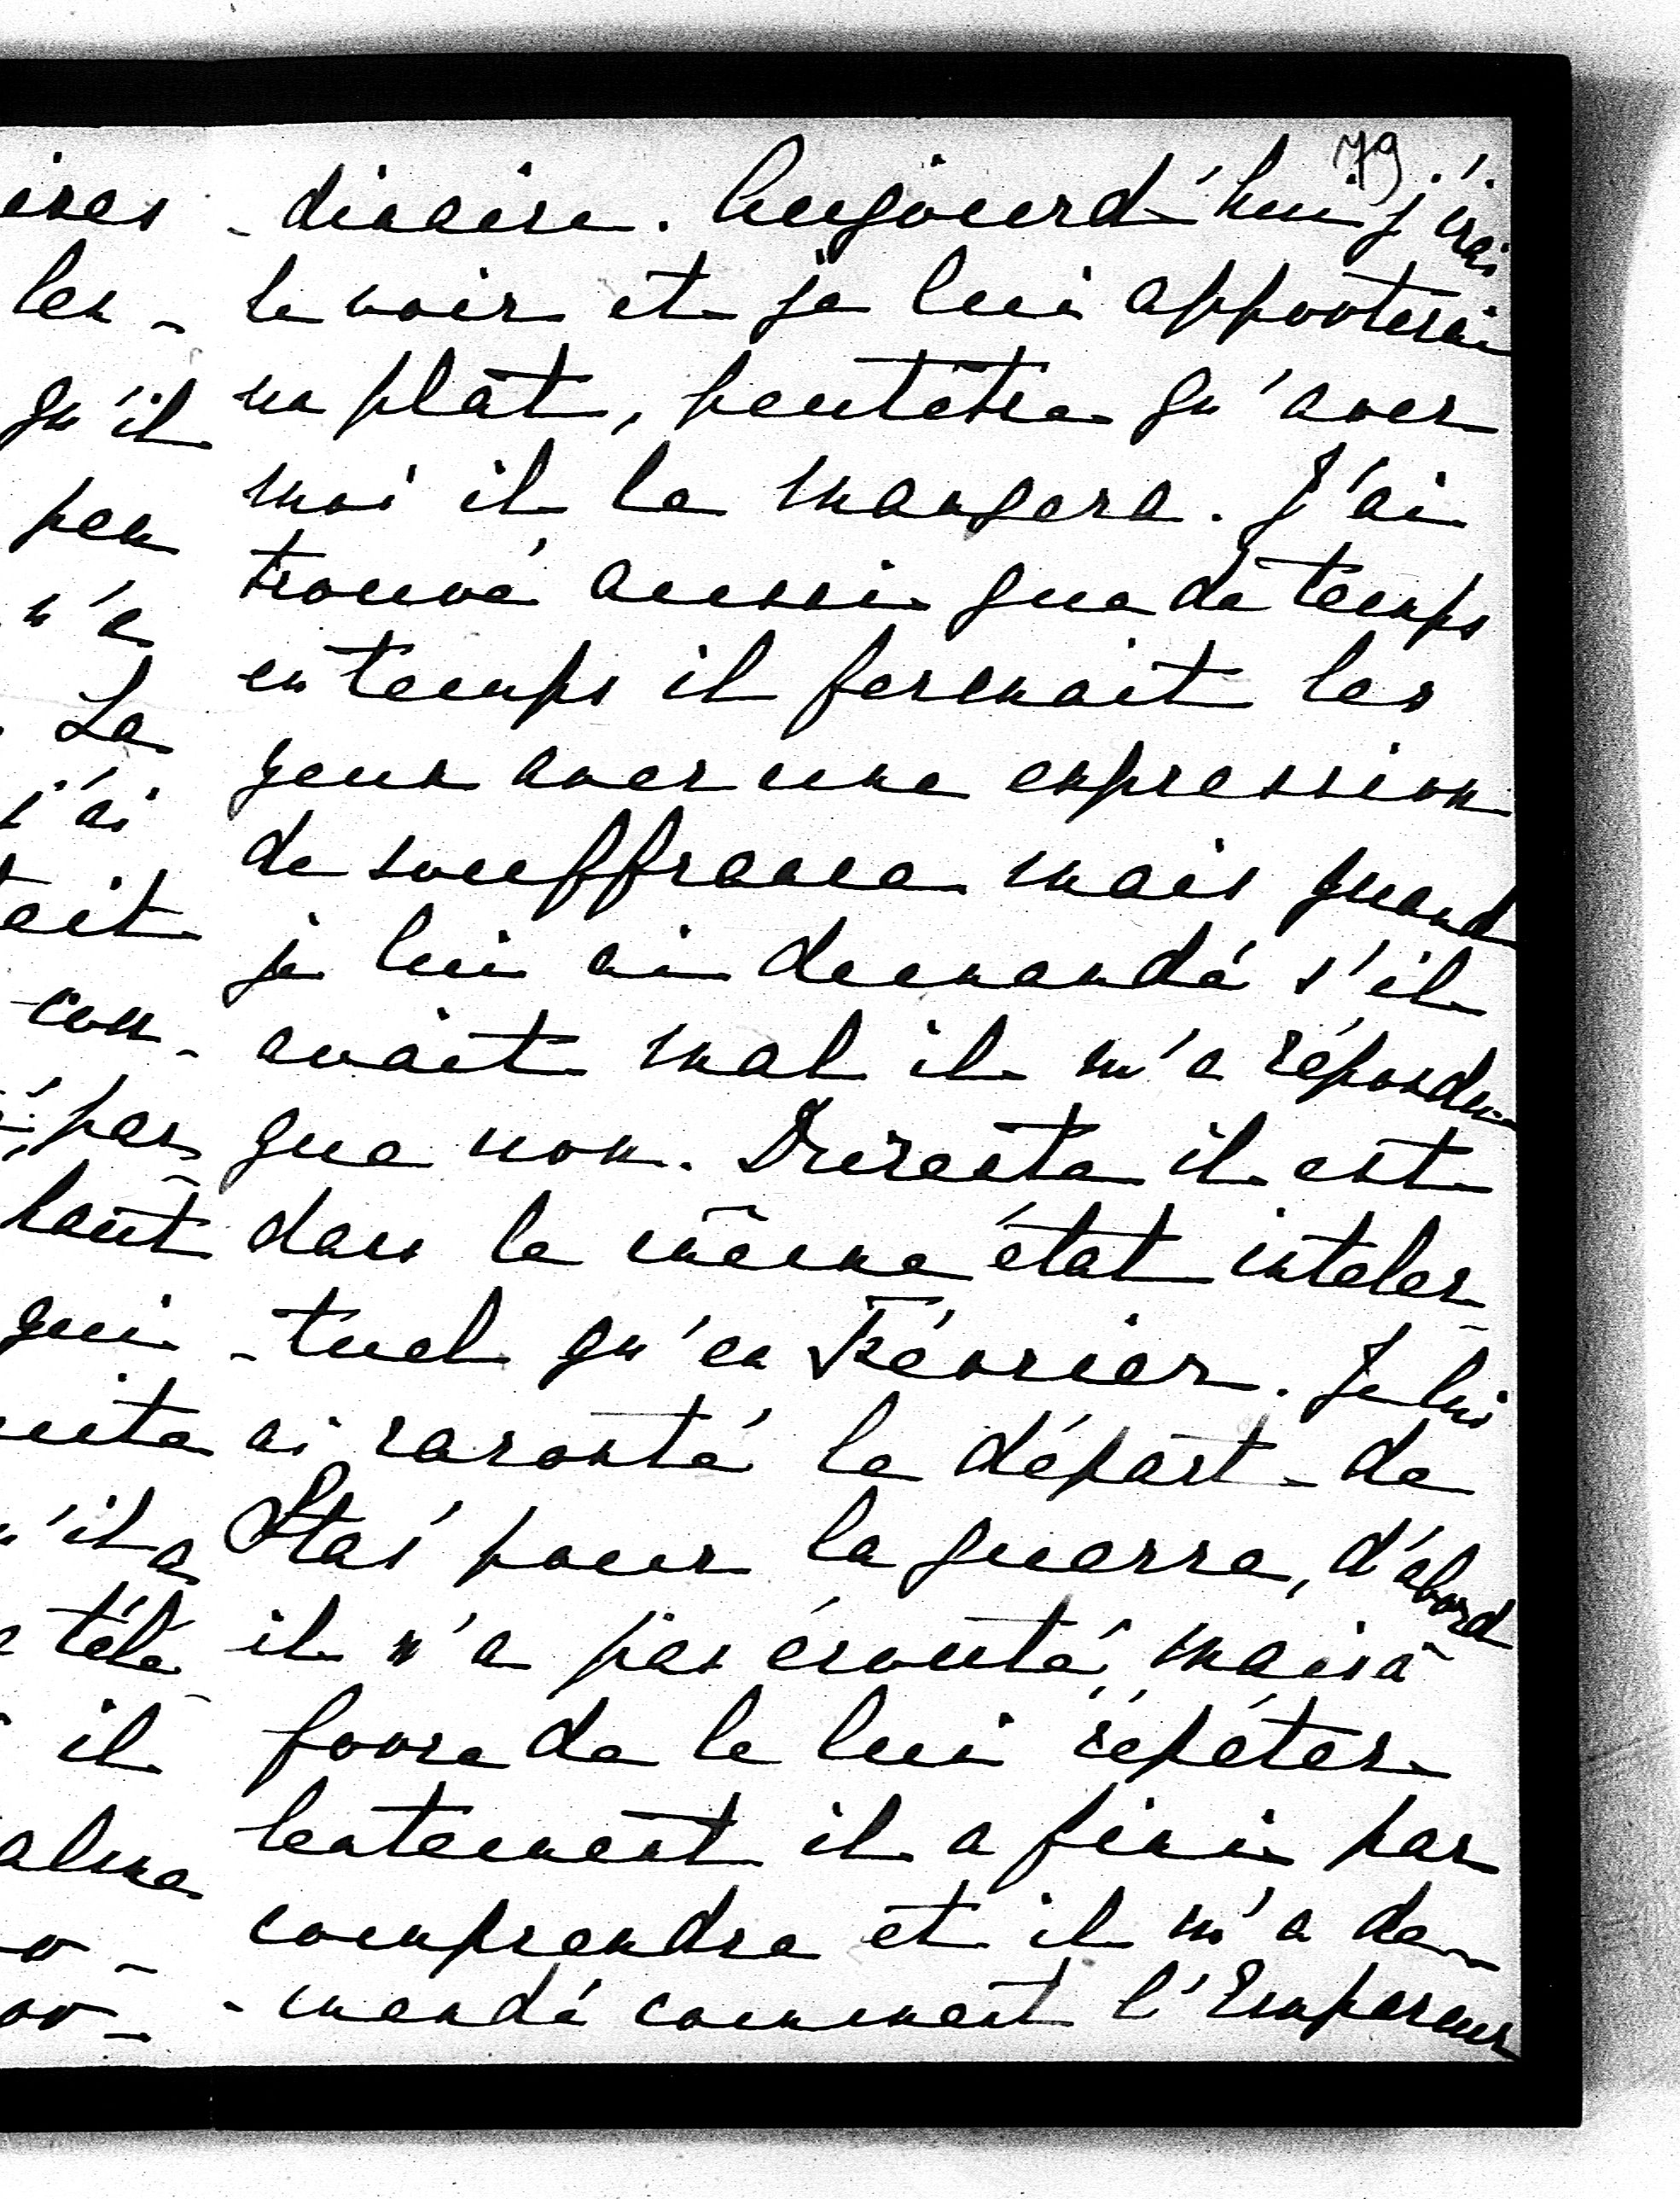 79
-dinaire. Aujourd'hui j'irai
le voir et je lui apporterai
un plat, peutêtre qu'avec
moi il le mangera. J'ai
trouvé aussi que de temps
en temps il fermait les
yeux avec une expression
de souffrance mais quand
je lui ai demandé s'il
avait mal il m'a répondu
que non. Du reste il est
dans le même état intelec-
-tuel qu'en Février. Je lui
ai raconté le départ de
Staś pour la guerre, d'abord
il n'a pas écouté, mais à
force de le lui répéter
lentement il a fini par
comprendre et il m'a de-
-mandé comment l'Empereur
les-
qu'il
peu
n'a
La
j'ai
con-
pas
haut
qui
il